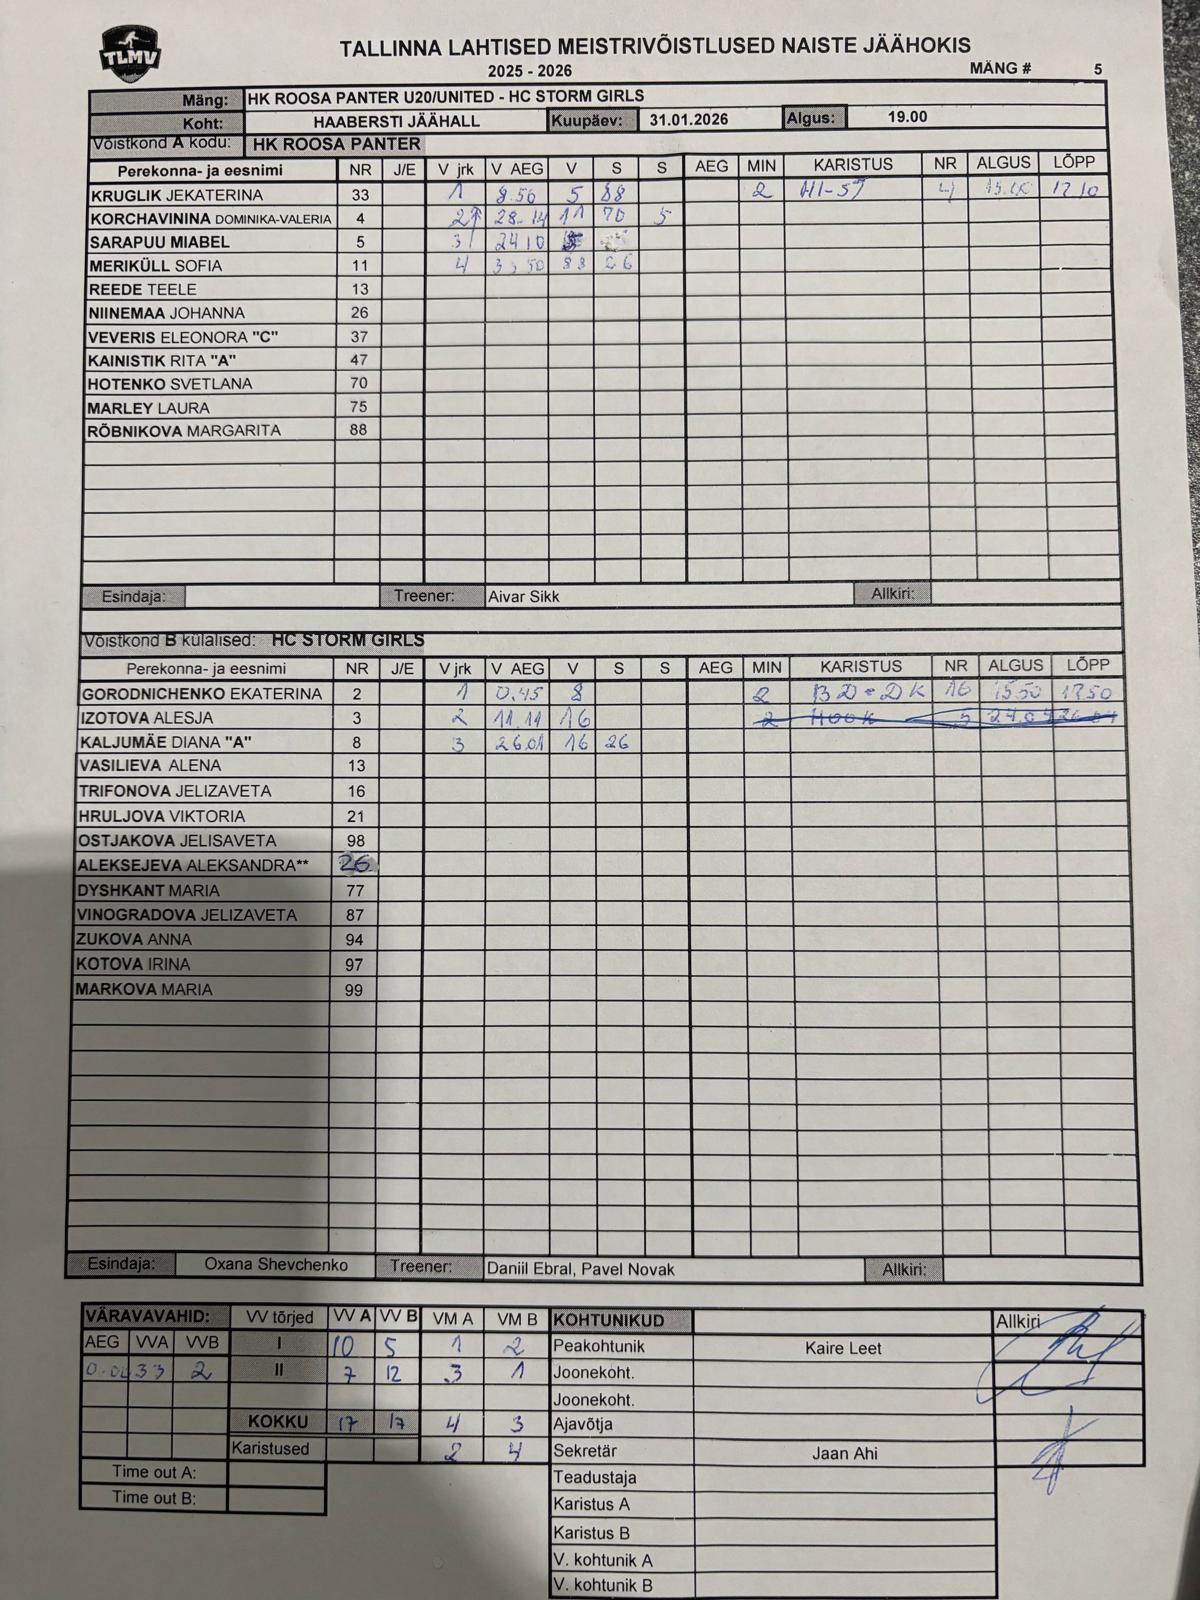 TLMV
TALLINNA LAHTISED MEISTRIVÕISTLUSED NAISTE JÄÄHOKIS
2025 - 2026 MÄNG # 5
Mäng: HK ROOSA PANTER U20/UNITED - HC STORM GIRLS
Koht: HAABERSTI JÄÄHALL Kuupäev: 31.01.2026 Algus: 19.00
Võistkond A kodu: HK ROOSA PANTER
Perekonna- ja eesnimi NR J/E V jrk V AEG V S S AEG MIN KARISTUS NR ALGUS LÕPP
KRUGLIK JEKATERINA 33 1 8.56 5 88 2 HI-ST 4 17.10
KORCHAVININA DOMINIKA-VALERIA 4 2 28.14 11 70 5
SARAPUU MIABEL 5 3 24 10
MERIKÜLL SOFIA 11 4 88 26
REEDE TEELE 13
NIINEMAA JOHANNA 26
VEVERIS ELEONORA "C" 37
KAINISTIK RITA "A" 47
HOTENKO SVETLANA 70
MARLEY LAURA 75
RÕBNIKOVA MARGARITA 88
Esindaja: Treener: Aivar Sikk Allkiri:
Võistkond B külalised: HC STORM GIRLS
Perekonna- ja eesnimi NR J/E V jrk V AEG V S S AEG MIN KARISTUS NR ALGUS LÕPP
GORODNICHENKO EKATERINA 2 1 0.45 8 2 16 15.50 17.50
IZOTOVA ALESJA 3 2 11.14 16 2 HOOK 5
KALJUMÄE DIANA "A" 8 3 26.01 16 26
VASILIEVA ALENA 13
TRIFONOVA JELIZAVETA 16
HRULJOVA VIKTORIA 21
OSTJAKOVA JELISAVETA 98
ALEKSEJEVA ALEKSANDRA** 26
DYSHKANT MARIA 77
VINOGRADOVA JELIZAVETA 87
ZUKOVA ANNA 94
KOTOVA IRINA 97
MARKOVA MARIA 99
Esindaja: Oxana Shevchenko Treener: Daniil Ebral, Pavel Novak Allkiri:
VÄRAVAVAHID: VV tõrjed VV A VV B VM A VM B KOHTUNIKUD Allkiri
AEG VVA VVB I 10 5 1 2 Peakohtunik Kaire Leet
33 2 II 7 12 3 1 Joonekoht.
Joonekoht.
KOKKU 17 17 4 3 Ajavõtja
Karistused 2 4 Sekretär Jaan Ahi
Time out A: Teadustaja
Time out B: Karistus A
Karistus B
V. kohtunik A
V. kohtunik B